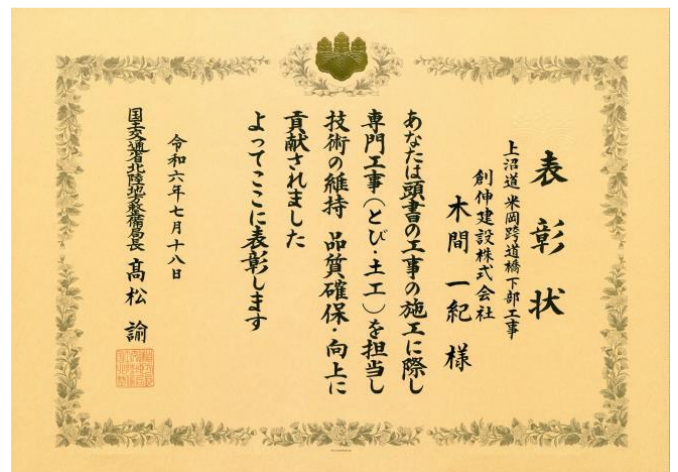 表彰状
上沼道 米岡跨道橋下部工事
創伸建設株式会社
木間 一紀 様
あなたは頭書の工事の施工に際し
専門工事(とび・土工)を担当し
技術の維持 品質確保・向上に
貢献されました
よってここに表彰します
令和六年七月十八日
国土交通省北陸地方整備局長 髙松 諭